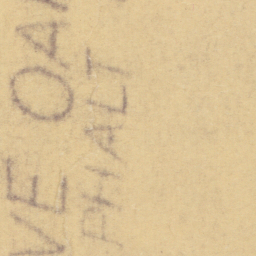 VE OAK
PHALT